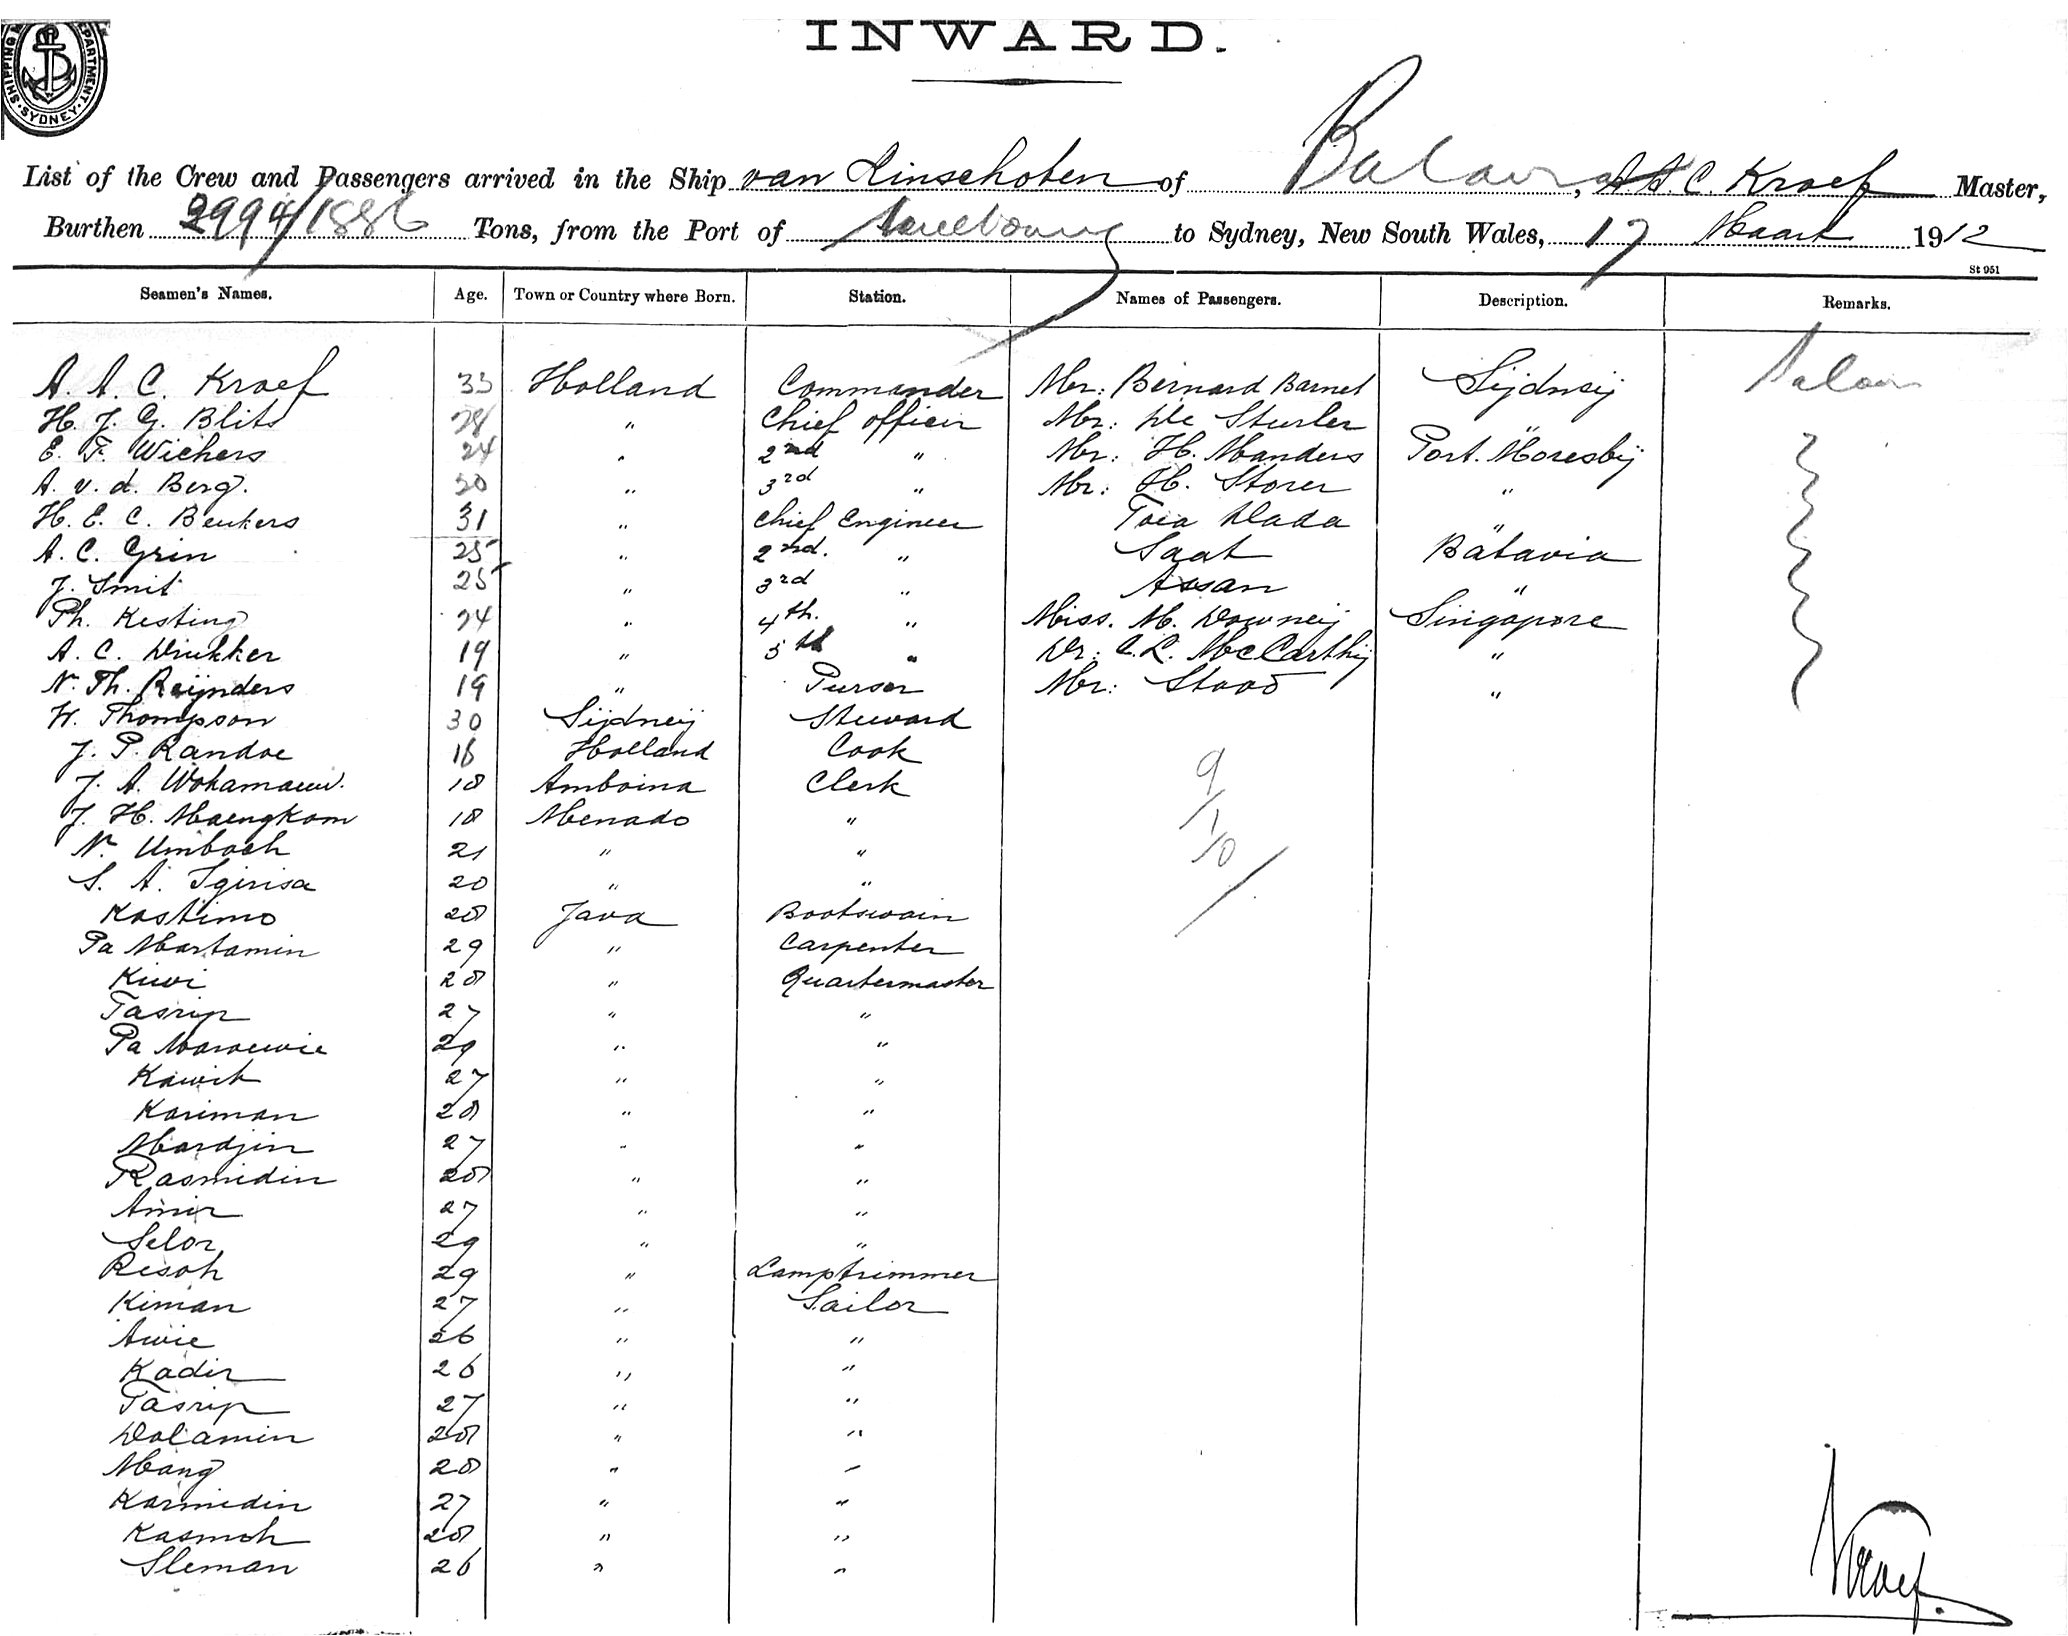 INWARD.
SHIPPING DEPARTMENT. SYDNEY
List of the Crew and Passengers arrived in the Ship van Linschoten of A. A. C. Kroef Master,
Burthen 2994/1886 Tons, from the Port of Melbourne to Sydney, New South Wales, 17 Maart 1912
St 951
Seamen's Names. Age. Town or Country where Born. Station. Names of Passengers. Description. Remarks.
A. A. C. Kroef 33 Holland Commander Mr: Bernard Barnet Sijdneij
H. J. G. Blits 28 " Chief officer Mr: De Sturler "
E. F. Wichers 24 " 2nd " Mr: H. Manders Port. Moresbij
A. v. d. Berg. 30 " 3rd " Mr: H. Storer "
H. E. C. Beukers 31 " Chief Engineer Dada "
A. C. Grin 25 " 2nd. " Saat Batavia
J. Smit 25 " 3rd " Assan "
Ph. Kesting 24 " 4th. " Miss. M. Downeij Singapore
A. C. Drukker 19 " 5th " Dr: C. L. McCarthij "
N. Th. Reijnders 19 " Purser Mr: "
H. Thompson 30 Sijdneij Steward
J. P. Randoe 18 Holland Cook
J. A. 18 Amboina Clerk
J. H. Maengkom 18 Menado "
N. Umboh 21 " "
S. A. 20 " "
Kastimo 28 Java Bootswain
Pa Martamin 29 " Carpenter
Kiwi 28 " Quartermaster
Tasrip 27 " "
Pa 29 " "
Kawit 27 " "
Kariman 28 " "
Mardjin 27 " "
Rasmidin 28 " "
Amir 27 " "
Selor 29 " "
Resoh 29 " Lamptrimmer
Kiman 27 " Sailor
Awie 26 " "
Kadir 26 " "
Tasrip 27 " "
Dalamin 28 " "
Mang 28 " "
Karmidin 27 " "
Kasmoh 28 " "
Sleman 26 " "
9
1/10
Kroef.